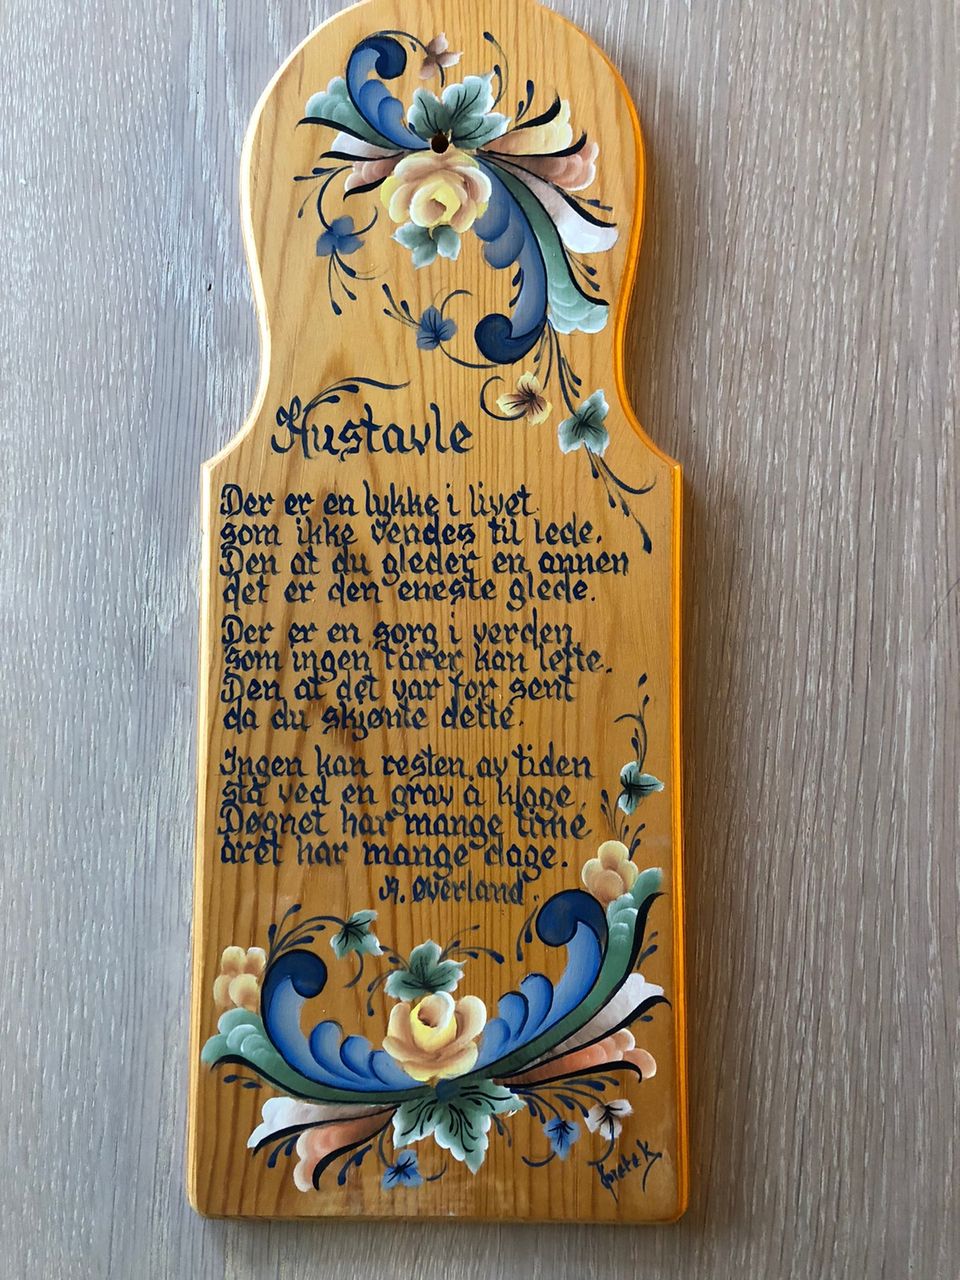 Hustavle
Der er en lykke i livet
som ikke vendes til lede.
Den at du gleder en annen
det er den eneste glede.
Der er en sorg i verden
som ingen tårer kan lette.
Den at det var for sent
da du skjønte dette.
Ingen kan resten av tiden
stå ved en grav å klage.
Døgnet har mange time
året har mange dage.
A. Øverland.